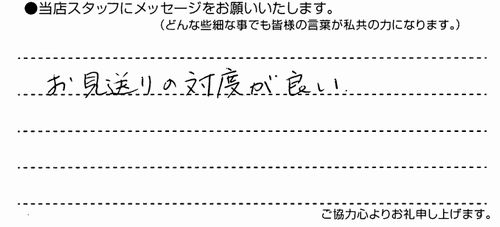 ●当店スタッフにメッセージをお願いいたします。
(どんな些細な事でも皆様の言葉が私共の力になります。)
お見送りの対度が良い
ご協力心よりお礼申し上げます。